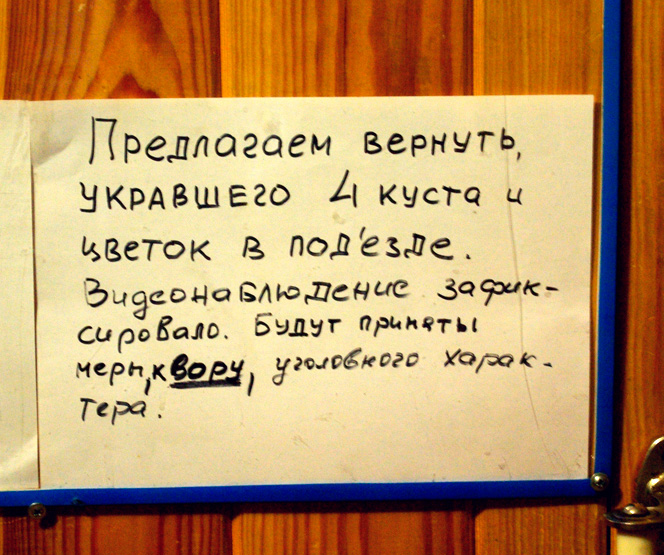 Предлагаем вернуть,
укравшего 4 куста и
цветок в под'езде.
Видеонаблюдение зафик-
сировало. Будут приняты
меры, к вору, уголовного харак-
тера.